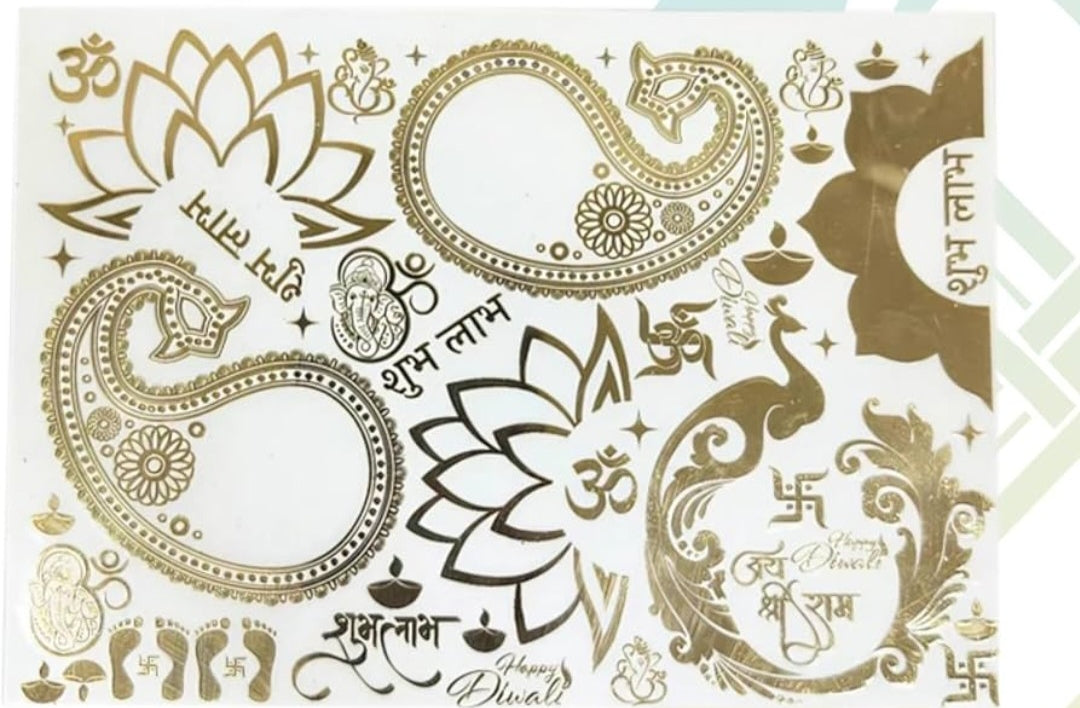 ॐ
शुभ लाभ
शुभ लाभ
ॐ
शुभ लाभ
Happy
Diwali
ॐ
Happy
Diwali
जय
श्री राम
ॐ
शुभ लाभ
Happy
Diwali